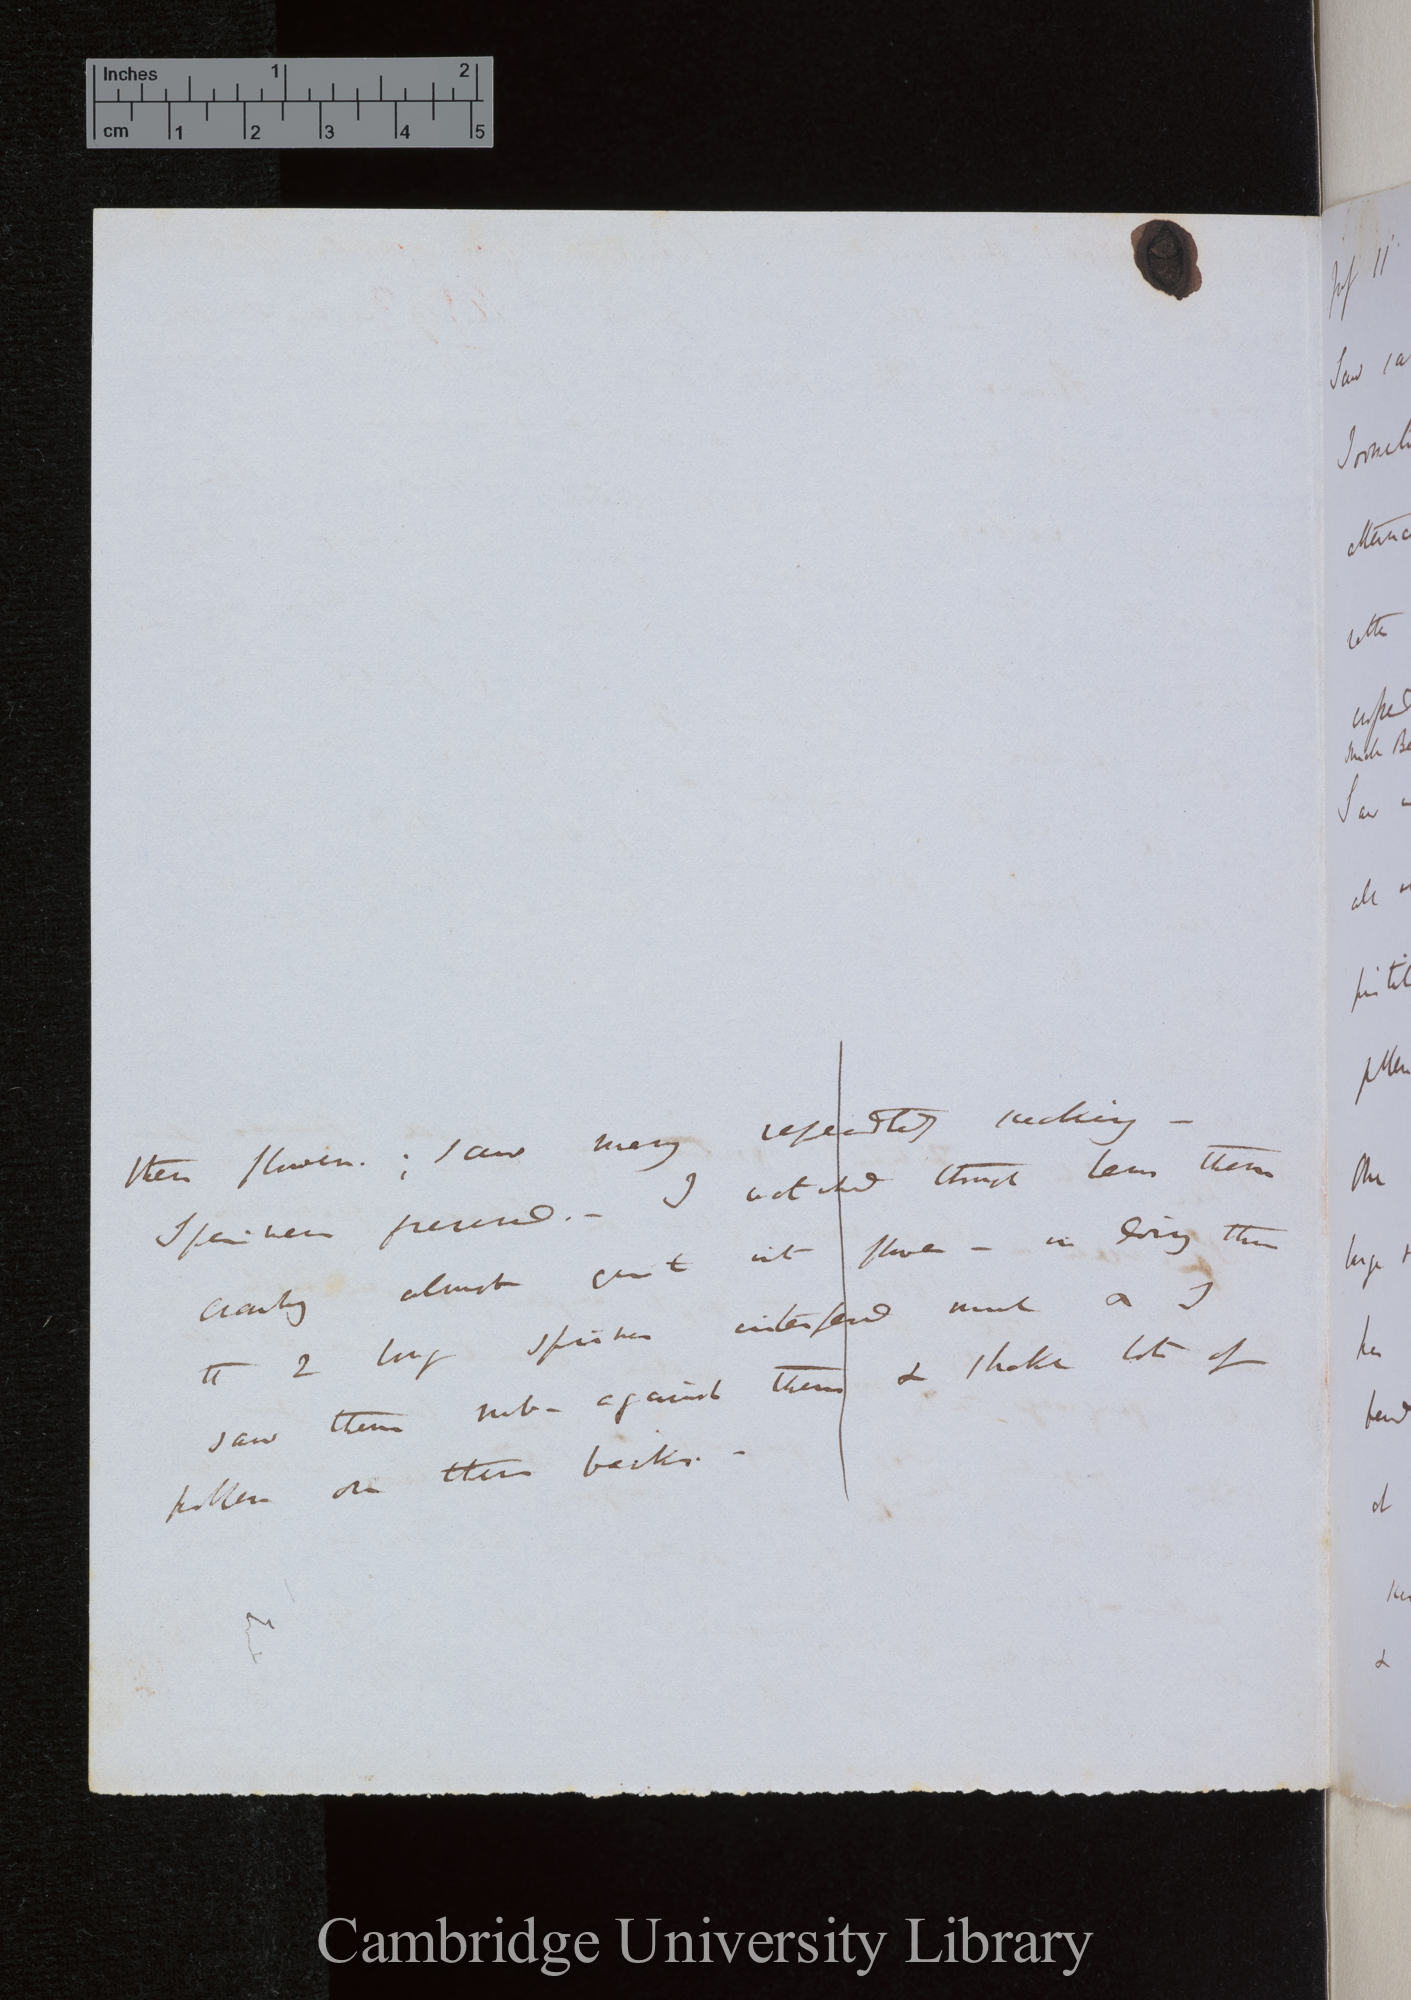 Inches 1 2
cm 1 2 3 4 5
these flowers. ; saw many repeatedly sucking —
Specimens preserved. — I watched through lens them
crawling almost quite into flower — in doing this
the 2 long spines interfered much & I
saw them rub against them & shake lots of
pollen on their backs. —
11
Saw
pollen
One
large
&
Cambridge University Library